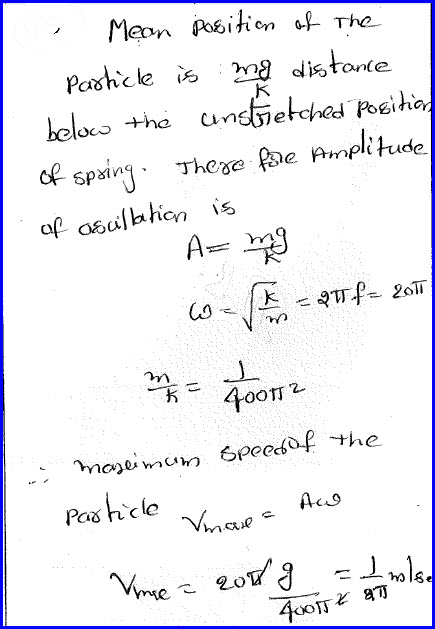 Mean position of The
particle is mg/k distance
below the unstretched position
of spring. There fore Amplitude
of oscillation is
A = mg/k
ω = √(k/m) = 2πf = 20π
m/k = 1/400π²
∴ maximum speed of the
particle Vmax = Aω
Vmax = 20π g/400π² = 1/2π m/se